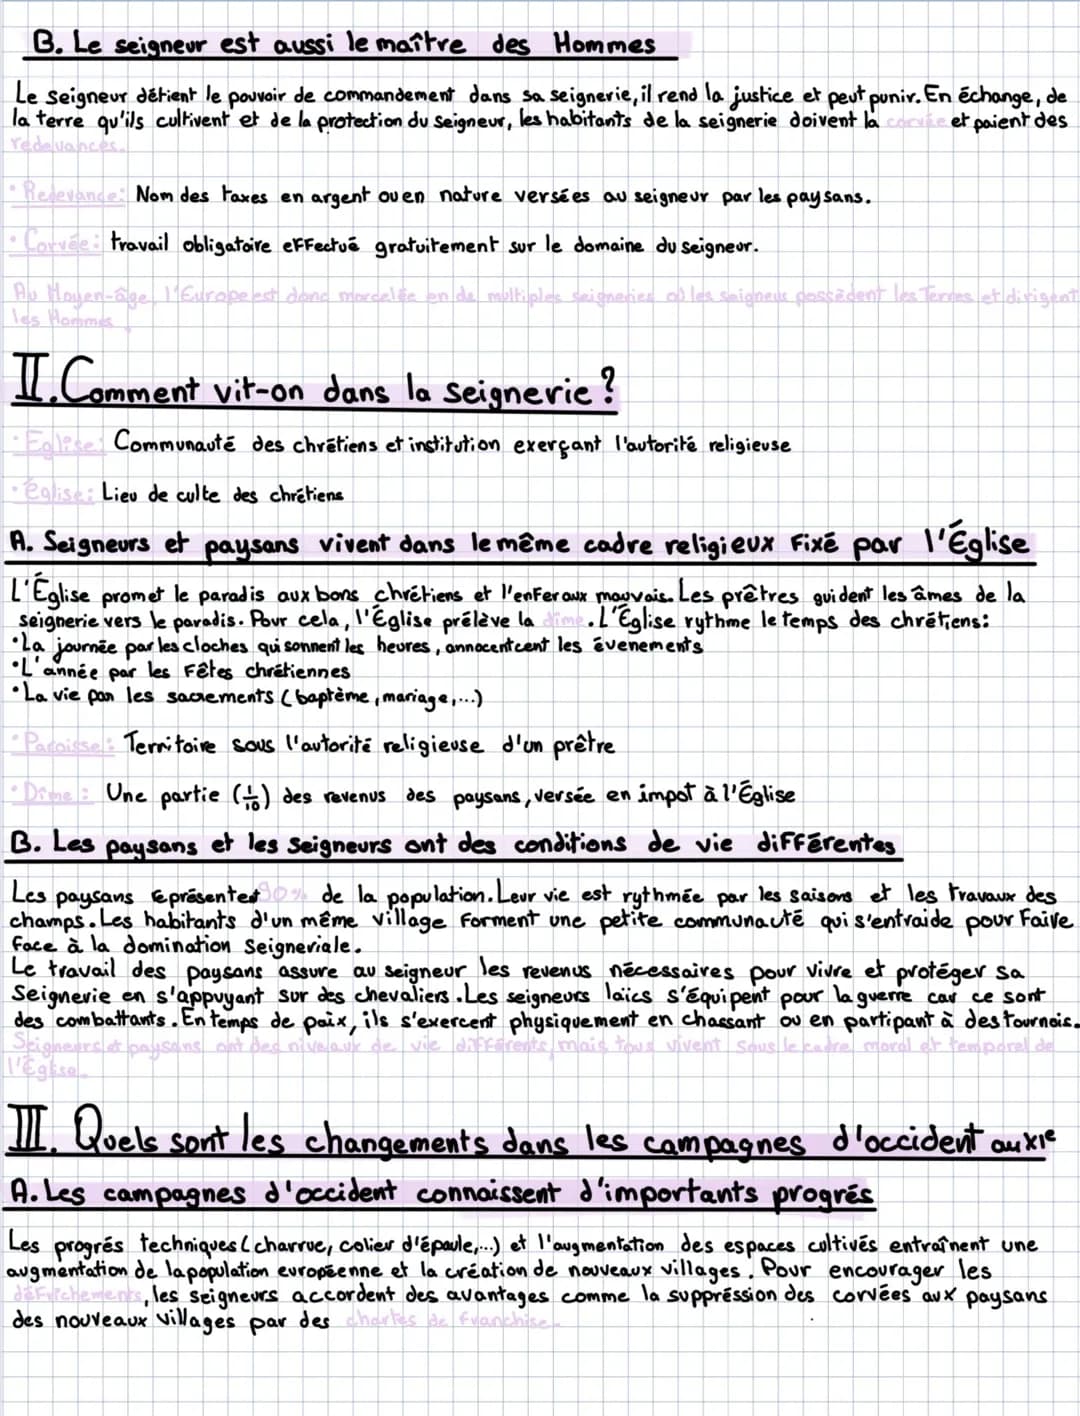 B. Le seigneur est aussi le maître des Hommes
Le seigneur détient le pouvoir de commandement dans sa seignerie, il rend la justice et peut punir. En échange, de
la terre qu'ils cultivent et de la protection du seigneur, les habitants de la seignerie doivent la corvée et paient des
redevances.
• Redevance: Nom des taxes en argent ou en nature versées au seigneur par les paysans.
• Corvée: travail obligatoire effectué gratuitement sur le domaine du seigneur.
Au Moyen-âge, l'Europe est donc morcelée en de multiples seigneries où les seigneurs possèdent les Terres et dirigent
les Hommes.
II. Comment vit-on dans la seignerie?
• Eglise: Communauté des chrétiens et institution exerçant l'autorité religieuse
• église: Lieu de culte des chrétiens
A. Seigneurs et paysans vivent dans le même cadre religieux fixé par l'Église
L'Église promet le paradis aux bons chrétiens et l'enfer aux mauvais. Les prêtres guident les âmes de la
seignerie vers le paradis. Pour cela, l'Église prélève la dîme. L'Église rythme le temps des chrétiens:
• La journée par les cloches qui sonnent les heures, annocentcent les évenements
• L'année par les Fêtes chrétiennes
• La vie par les sacrements (baptème, mariage,...)
• Paroisse: Territoire sous l'autorité religieuse d'un prêtre
• Dîme: Une partie (1/10) des revenus des paysans, versée en impot à l'Église
B. Les paysans et les Seigneurs ont des conditions de vie différentes
Les paysans représentes 90% de la population. Leur vie est rythmée par les saisons et les travaux des
champs. Les habitants d'un même village forment une petite communauté qui s'entraide pour faire
face à la domination Seigneriale.
Le travail des paysans assure au seigneur les revenus nécessaires pour vivre et protéger sa
Seignerie en s'appuyant sur des chevaliers. Les seigneurs laïcs s'équipent pour la guerre car ce sont
des combattants. En temps de paix, ils s'exercent physiquement en chassant ou en partipant à des tournois.
Seigneurs et paysans ont des niveaux de vie différents, mais tous vivent sous le cadre moral et temporel de
l'Église.
III. Quels sont les changements dans les campagnes d'occident au XIe
A. Les campagnes d'occident connaissent d'importants progrés
Les progrés techniques (charrue, colier d'épaule,...) et l'augmentation des espaces cultivés entraînent une
augmentation de la population européenne et la création de nouveaux villages. Pour encourager les
défrichements, les seigneurs accordent des avantages comme la suppréssion des corvées aux paysans
des nouveaux villages par des chartes de franchise.